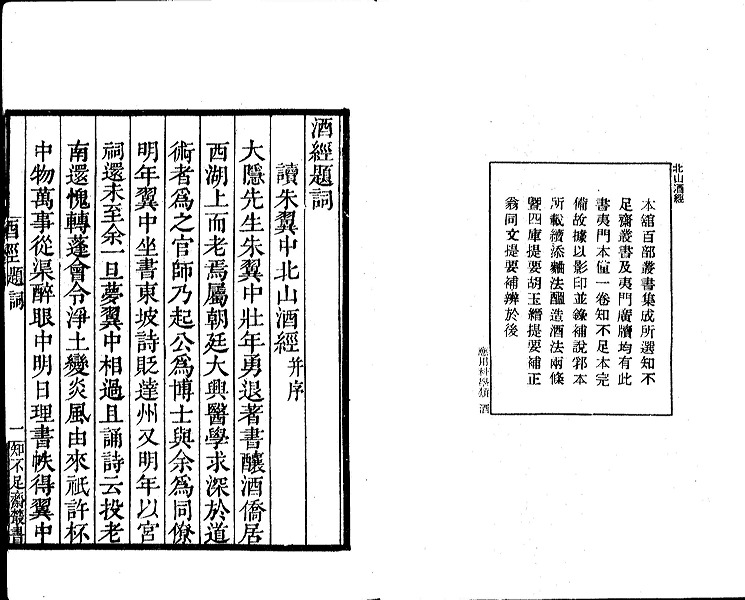 北山酒經
本館百部叢書集成所選知不
足齋叢書及夷門廣牘均有此
書夷門本僅一卷知不足本完
備故據以影印並錄補說郛本
所載續添麯法醞造酒法兩條
暨四庫提要胡玉縉提要補正
翁同文提要補辨於後
應用科學類 酒
酒經題詞
讀朱翼中北山酒經并序
大隱先生朱翼中壯年勇退著書釀酒僑居
西湖上而老焉屬朝廷大興醫學求深於道
術者為之官師乃起公為博士與余為同僚
明年翼中坐書東坡詩貶達州又明年以宮
祠還未至余一旦夢翼中相過且誦詩云投老
南還愧轉蓬會令淨土變炎風由來祇許杯
中物萬事從渠醉眼中明日理書帙得翼中
酒經題詞
一
知不足齋叢書